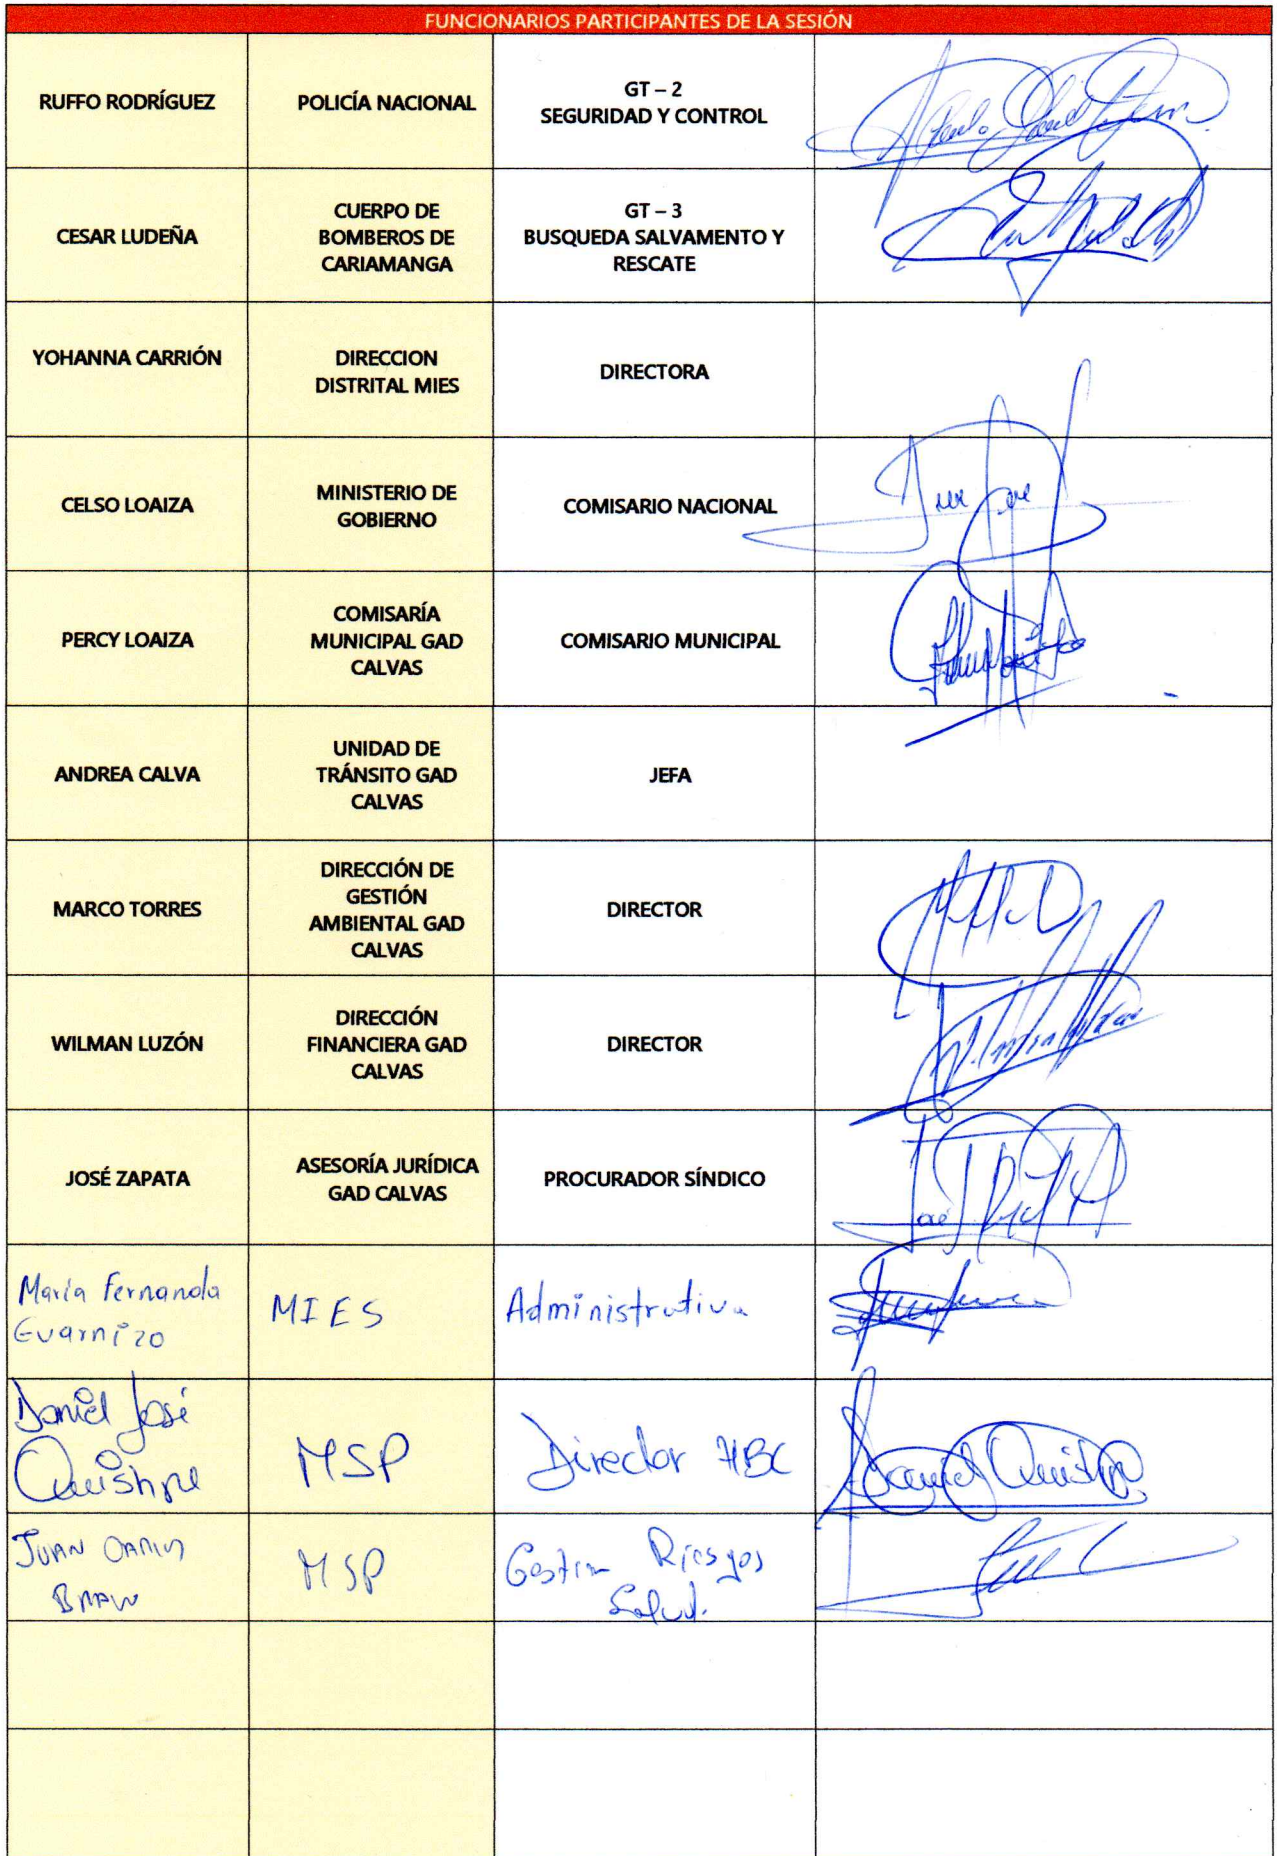 FUNCIONARIOS PARTICIPANTES DE LA SESIÓN
RUFFO RODRÍGUEZ
POLICÍA NACIONAL
GT – 2
SEGURIDAD Y CONTROL
CESAR LUDEÑA
CUERPO DE
BOMBEROS DE
CARIAMANGA
GT – 3
BUSQUEDA SALVAMENTO Y
RESCATE
YOHANNA CARRIÓN
DIRECCION
DISTRITAL MIES
DIRECTORA
CELSO LOAIZA
MINISTERIO DE
GOBIERNO
COMISARIO NACIONAL
PERCY LOAIZA
COMISARÍA
MUNICIPAL GAD
CALVAS
COMISARIO MUNICIPAL
ANDREA CALVA
UNIDAD DE
TRÁNSITO GAD
CALVAS
JEFA
MARCO TORRES
DIRECCIÓN DE
GESTIÓN
AMBIENTAL GAD
CALVAS
DIRECTOR
WILMAN LUZÓN
DIRECCIÓN
FINANCIERA GAD
CALVAS
DIRECTOR
JOSÉ ZAPATA
ASESORÍA JURÍDICA
GAD CALVAS
PROCURADOR SÍNDICO
María Fernanda
Guarnizo
MIES
Administrativa
Daniel José
Quishpe
MSP
Director HBC
Daniel Quishpe
JUAN CARLOS
MSP
Gestion Riesgos
Salud.